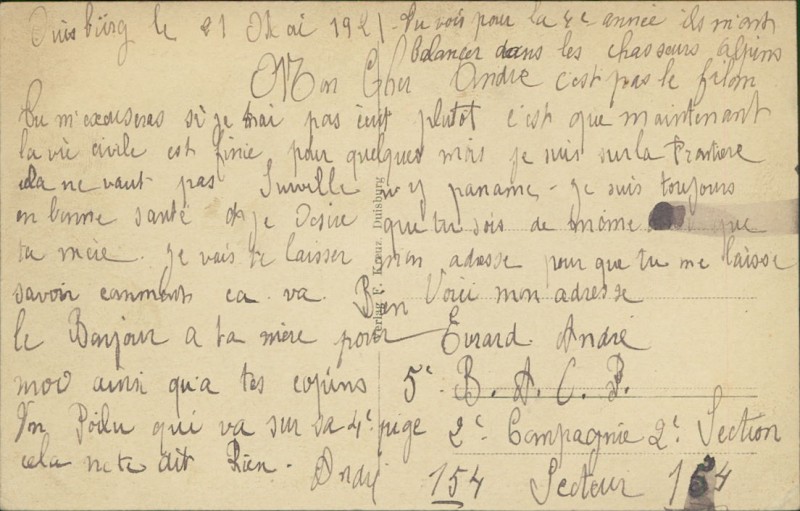 Duisbürg le 21 Mai 1921. Tu vois pour la 4e année ils m'ont
balancer dans les chasseurs alpins
Mon Cher André c'est pas le filon
Tu m'excuseras si je t'ai pas écrit plutôt c'est que maintenant
la vie civile est finie pour quelques mois je suis sur la Frontiere
cela ne vaut pas ni paname - je suis toujours
en bonne santé et je désire que tu sois de même que
ta mère. je vais te laisser mon adresse pour que tu me laisse
savoir comment ca va. Bien Voici mon adresse
le Bonjour a ta mère pour Evrard André
moi ainsi qu'a tes copins 5e B. A. C. P.
Un Poilu qui va sur sa 4e pige 2e Compagnie 2e Section
cela ne te dit Rien. André 154 Secteur 154
Verlag F. Kreuz, Duisburg